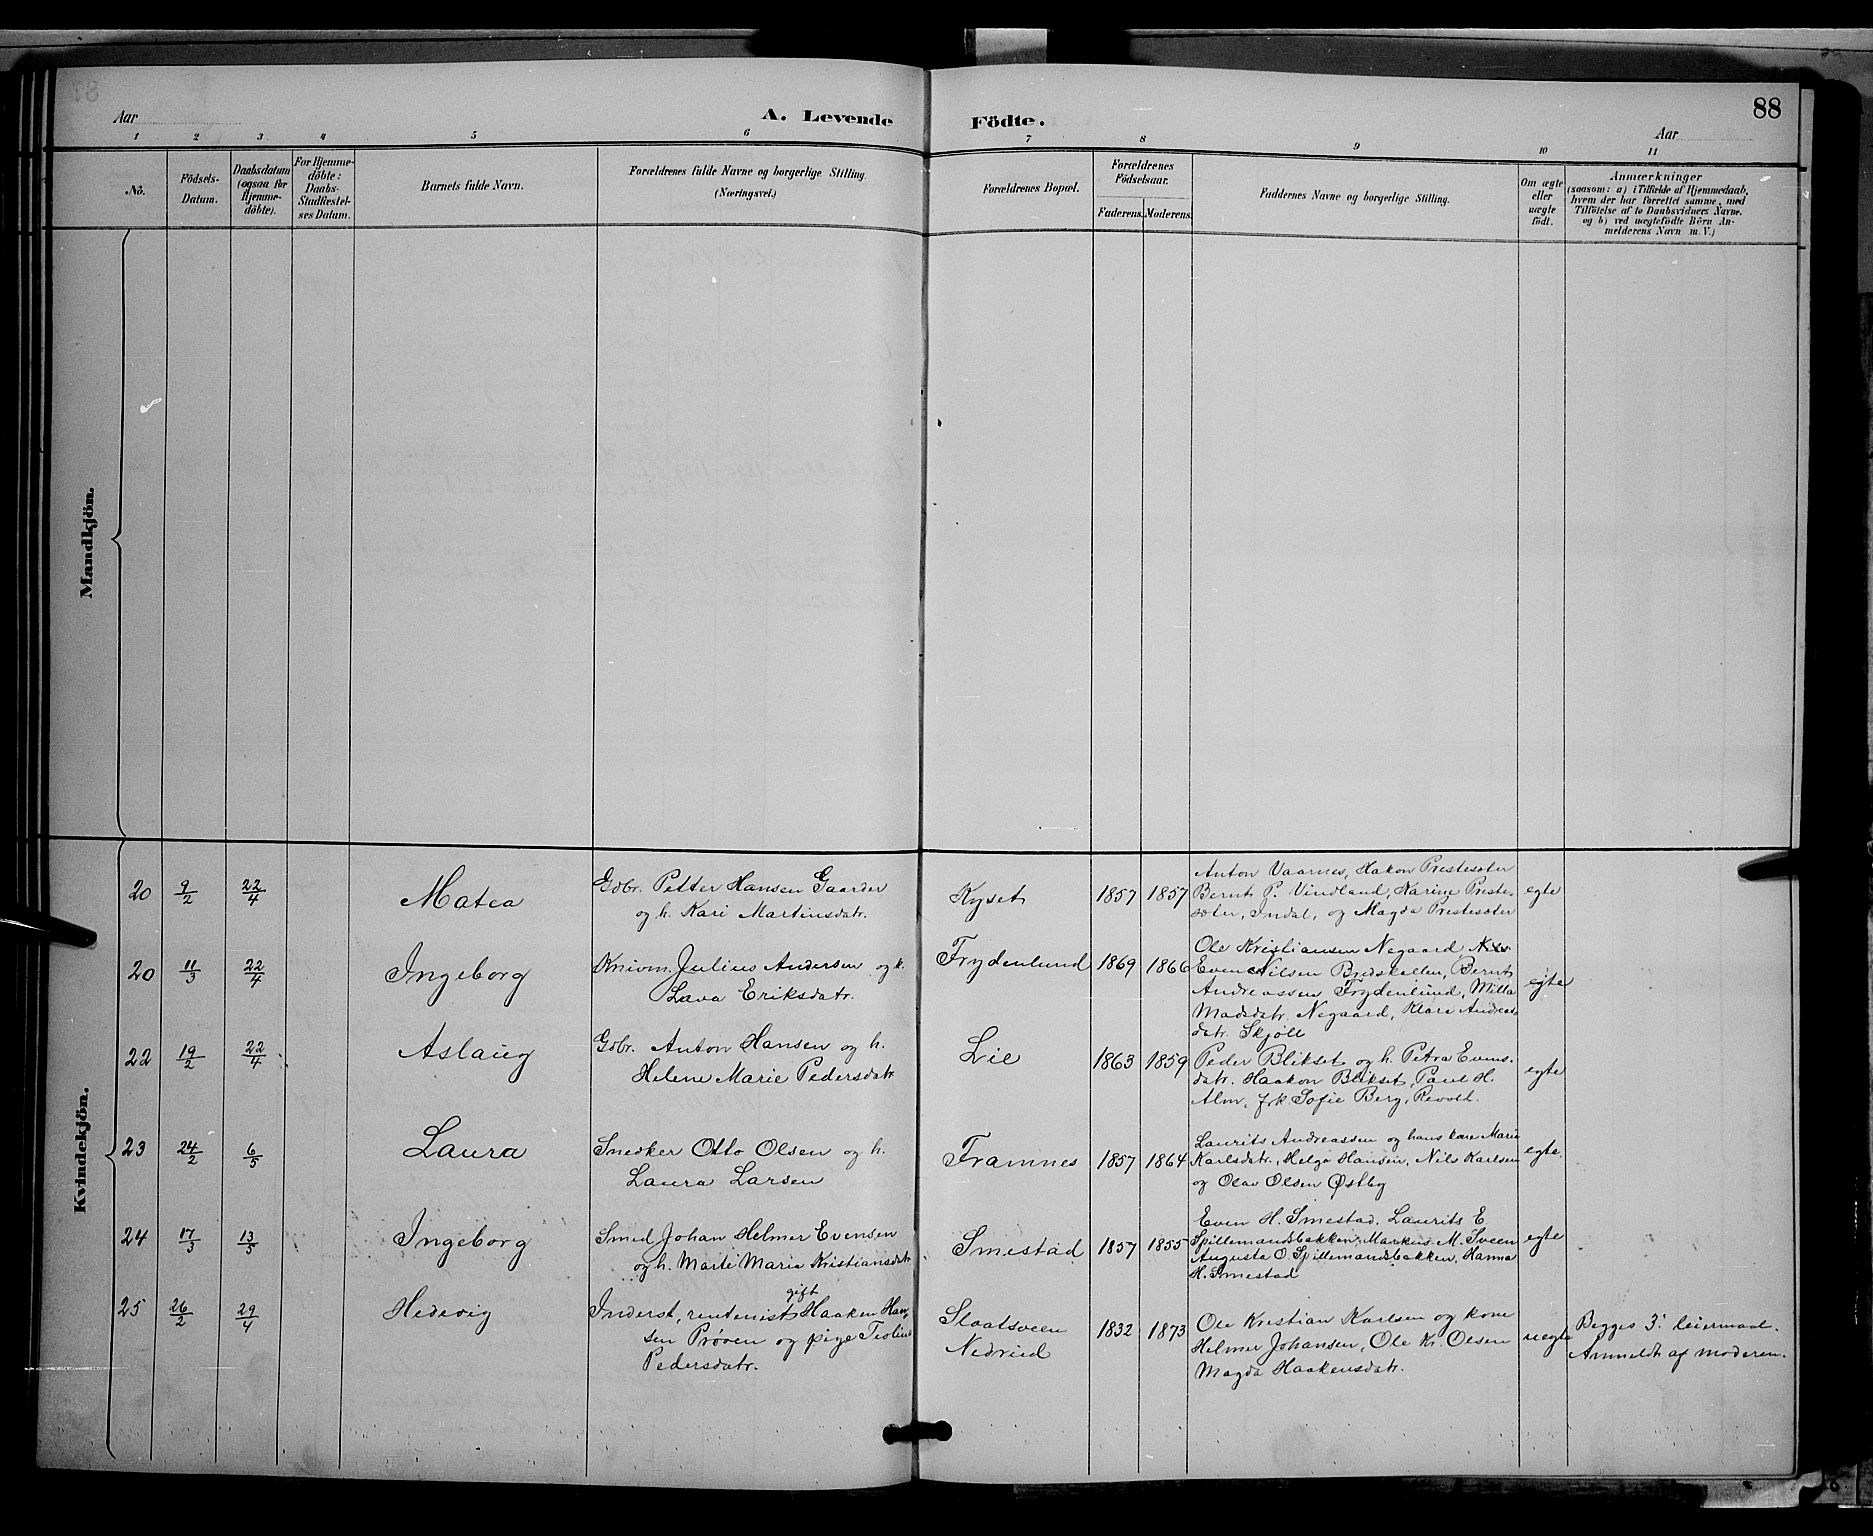 88
Aar
A. Levende Födte.
Aar
1 2 3 4 5 6 7 8 9 10 11
Nö.
Födsels-Datum.
Daabsdatum (ogsaa for Hjemmedöbte).
For Hjemmedöbte: Daabs-Stadfæstelses Datum.
Barnets fulde Navn.
Forældrenes fulde Navne og borgerlige Stilling. (Næringsvei.)
Forældrenes Bopæl.
Forældrenes Födselsaar.
Faderens. Moderens.
Faddernes Navne og borgerlige Stilling.
Om ægte eller uægte födt.
Anmærkninger
(saasom: a) i Tilfælde af Hjemmedaab,
hvem der har forrettet samme, med
Tilföielse af to Daabsvidners Navne.
og b) ved uægtefödte Börn An-
melderens Navn m. V.)
Mandkjön.
Kvindekjön.
20 9/2 22/4 Matea
Gdbr. Petter Hansen Gaarder
og h. Kari Martinsdatr.
Kyset 1857 1857
Anton Vaarnes, Hakon Prestesæter
Bernt P. Vindland, Karine Preste-
sæter, Indal, og Magda Prestesæter
egte
20 11/3 22/4 Ingeborg
Knivm. Julius Andersen og h.
Lava Eriksdatr.
Frydenlund 1869 1866
Ole Kristiansen Negaard
Even Nilsen Bredskallen, Bernt
Andreassen Frydenlund, Milla
Madsdatr. Negaard, Klara Andreas-
datr. Skjöll
egte
22 19/2 22/4 Aslaug
Gdbr. Anton Hansen og h.
Helene Marie Pedersdatr
Lie 1863 1859
Peder Blikset og h. Petra Evens-
datr. Haakon Blikset, Paul H.
Alm, frk Sofie Berg, Revoll.
egte
23 24/2 6/5 Laura
Snedker Otto Olsen og h.
Laura Larsen
Framnes 1857 1864
Laurits Andreassen og hans kone Marie
Karlsdatr., Helga Hansen, Nils Karlsen
og Olav Olsen Østby
egte.
24 17/3 13/5 Ingeborg
Smed Johan Helmer Evensen
og h. Marte Maria Kristiansdatr
Smestad 1857 1855
Even H. Smestad, Laurits E.
Spillemandsbakken, Markus M. Sveen
Augusta O. Spillemandsbakken, Hanna
H. Smestad
egte
25 26/2 29/4 Hedevig
Inderst, rentenist gift Haaken Han-
sen Prøven og pige Teoline
Pedersdatr.
Slaatsveen
Nedrud
1832 1873
Ole Kristian Karlsen og kone
Helmer Johansen, Ole Kr. Olsen
Magda Haakensdatr.
uegte
Begges 3. leiermaal.
Anmeldt af moderen.